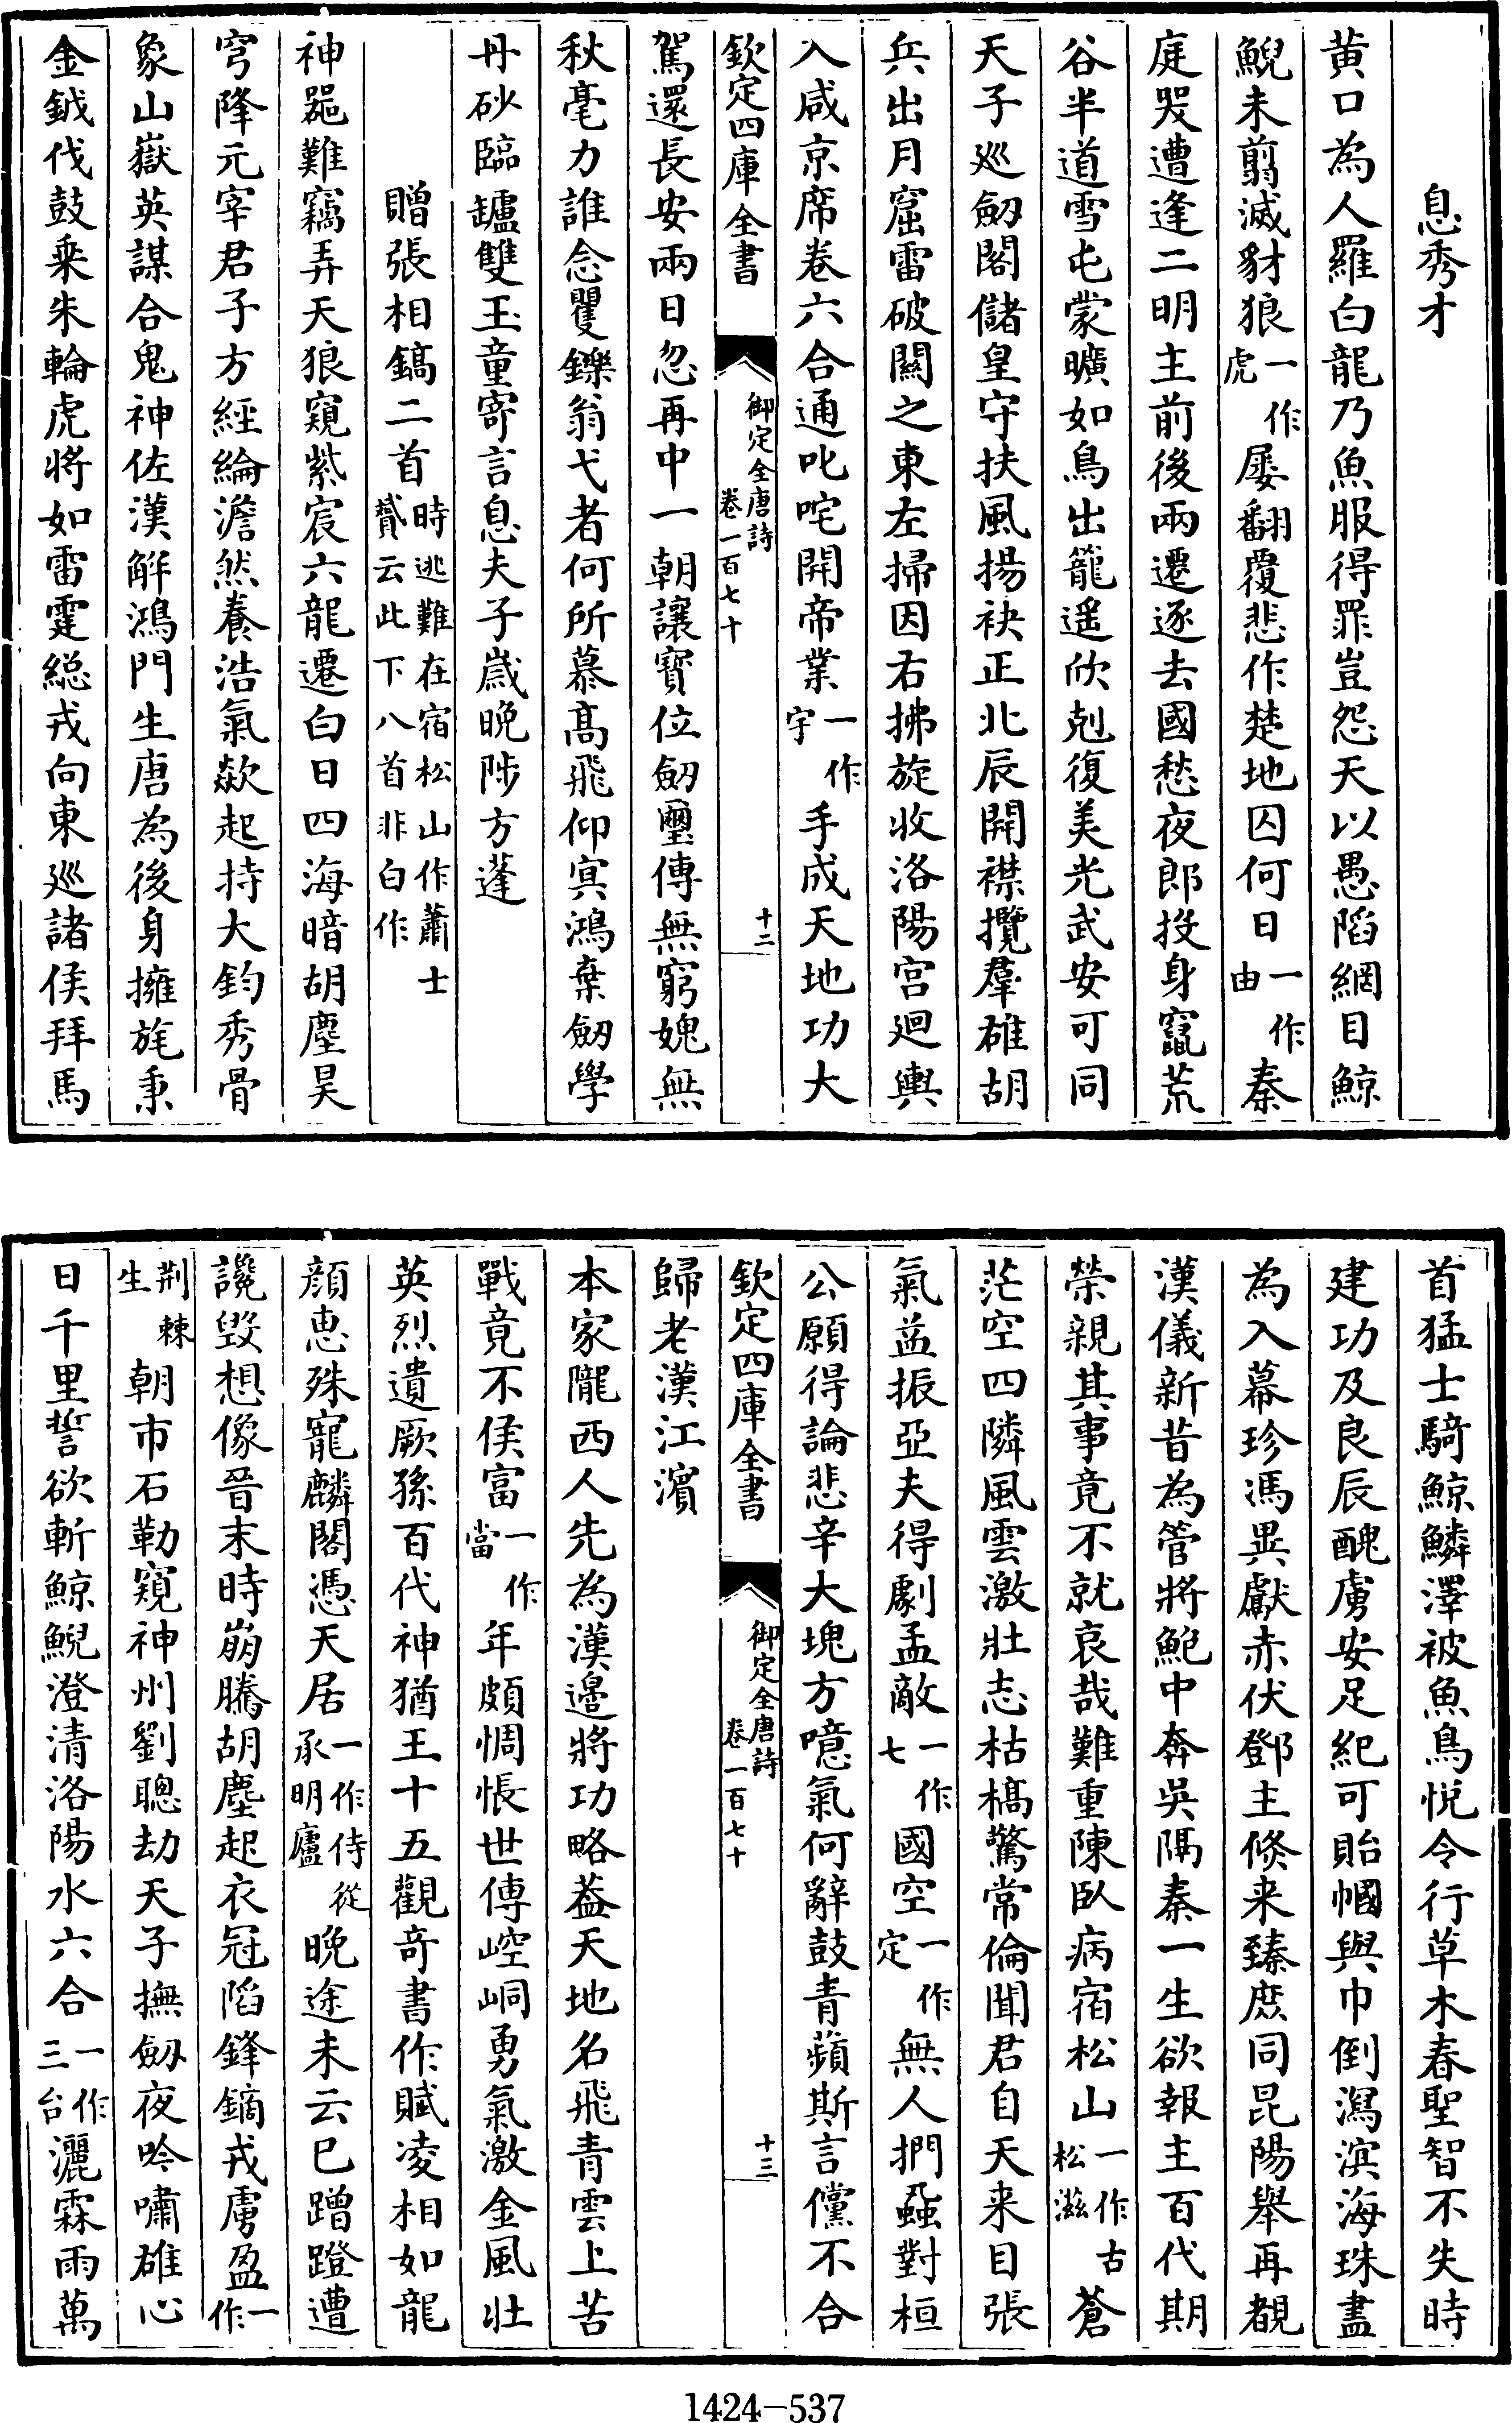 息秀才
黄口為人羅白龍乃魚服得罪豈怨天以愚陷網目鯨
鯢未翦滅豺狼一作虎屢翻覆悲作楚地囚何日一作由秦
庭哭遭逢二明主前後兩遷逐去國愁夜郎投身竄荒
谷半道雪屯蒙曠如鳥出籠遥欣剋復美光武安可同
天子廵劒閣儲皇守扶風揚袂正北辰開襟攬羣雄胡
兵出月窟雷破關之東左掃因右拂旋收洛陽宫廻輿
入咸京席卷六合通叱咤開帝業一作宇手成天地功大
欽定四庫全書
御定全唐詩
卷一百七十
十二
駕還長安兩日忽再中一朝讓寶位劒璽傳無窮媿無
秋毫力誰念矍鑠翁弋者何所慕髙飛仰㝠鴻棄劒學
丹砂臨罏雙玉童寄言息夫子歲晚陟方蓬
贈張相鎬二首時逃難在宿松山作蕭士贇云此下八首非白作
神噐難竊弄天狼窺紫宸六龍遷白日四海暗胡塵昊
穹降元宰君子方經綸澹然養浩氣欻起持大鈞秀骨
象山嶽英謀合鬼神佐漢解鴻門生唐為後身擁旄秉
金鉞伐鼓乗朱輪虎將如雷霆総戎向東廵諸侯拜馬
首猛士騎鯨鱗澤被魚鳥悦令行草木春聖智不失時
建功及良辰醜虜安足紀可貽幗與巾倒瀉溟海珠盡
為入幕珍馮異獻赤伏鄧主倏来臻庶同昆陽舉再覩
漢儀新昔為管將鮑中奔吳隅秦一生欲報主百代期
榮親其事竟不就哀哉難重陳臥病宿松山一作古松滋蒼
茫空四隣風雲激壯志枯槁驚常倫聞君自天来目張
氣益振亞夫得劇孟敵一作七國空一作定無人捫蝨對桓
公願得論悲辛大塊方噫氣何辭鼓青蘋斯言儻不合
欽定四庫全書
御定全唐詩
卷一百七十
十三
歸老漢江濱
本家隴西人先為漢邉將功略葢天地名飛青雲上苦
戰竟不侯富一作當年頗惆悵世傳崆峒勇氣激金風壯
英烈遺厥孫百代神猶王十五觀奇書作賦凌相如龍
顔恵殊寵麟閣憑天居一作侍從承明廬晚途未云已蹭蹬遭
讒毁想像晉末時崩騰胡塵起衣冠陷鋒鏑戎虜盈一作
荆棘生朝市石勒窺神州劉聰劫天子撫劒夜吟嘯雄心
日千里誓欲斬鯨鯢澄清洛陽水六合一作三台灑霖雨萬
1424—537